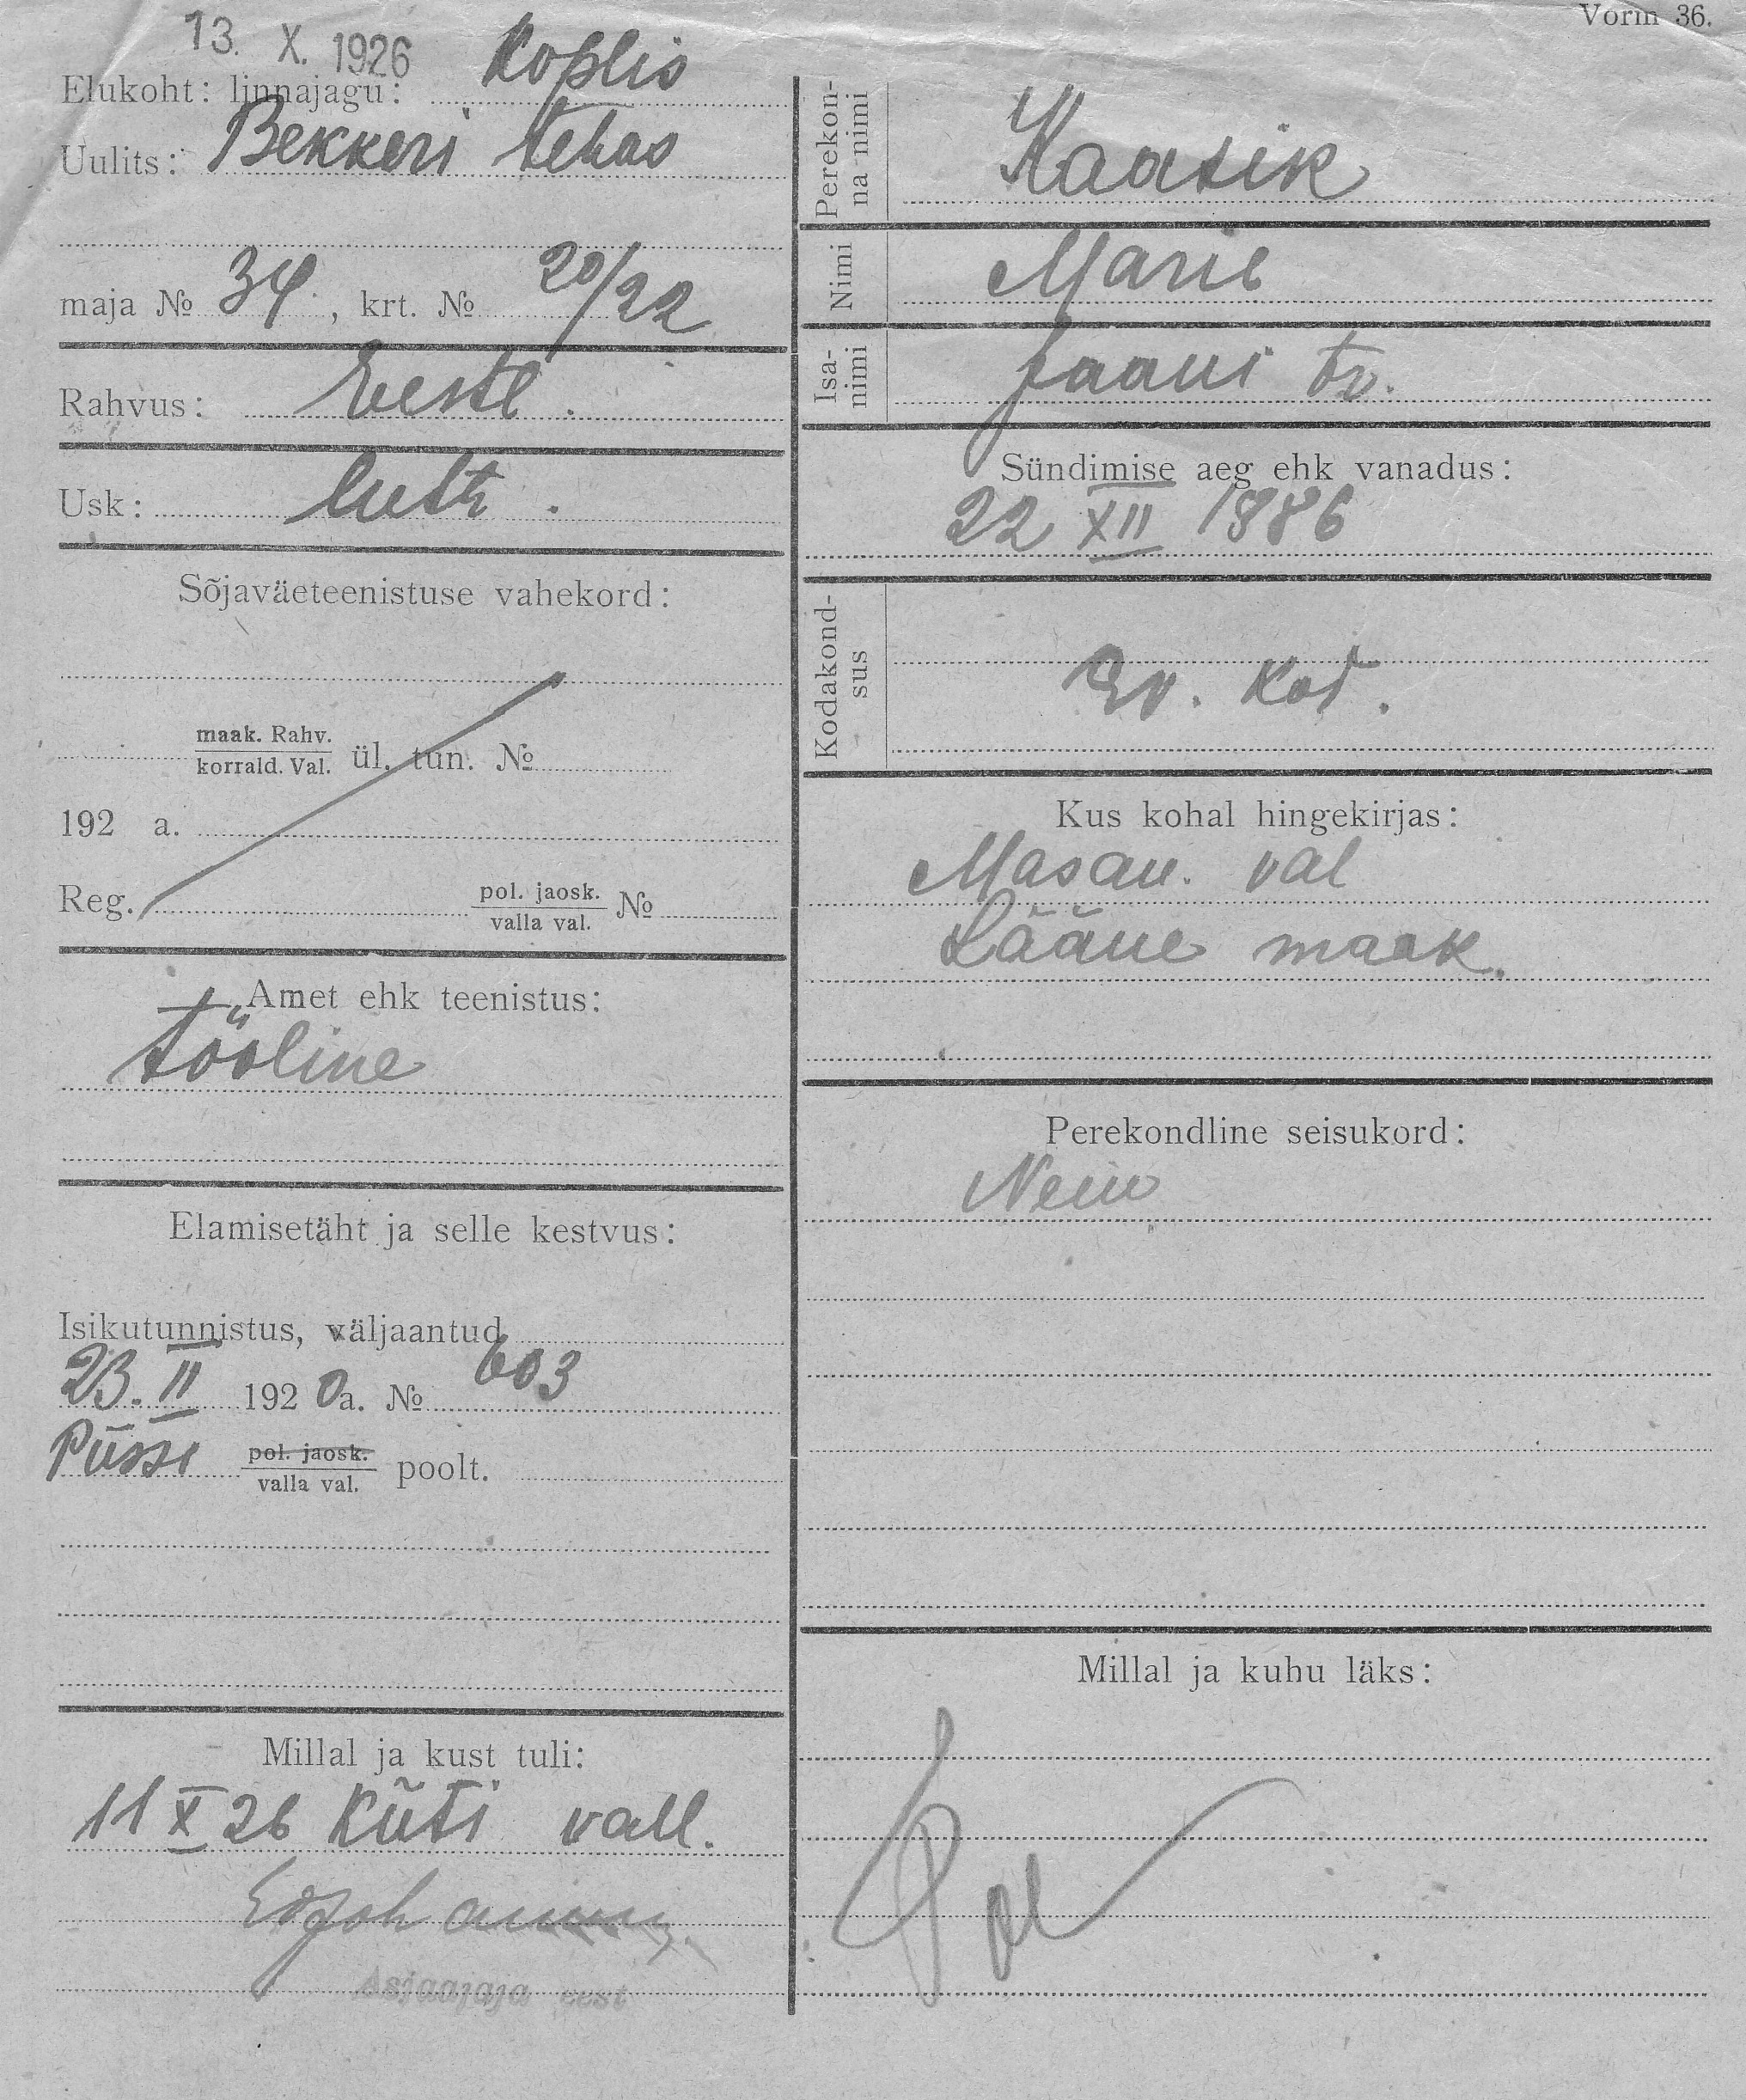 Vorm 36.
13. X. 1926
Elukoht: linnajagu: Koplis
Uulits: Bekkeri tehas
maja № 34, krt. № 20/22
Rahvus: Eesti.
Usk: luth.
Sõjaväeteenistuse vahekord:
maak. Rahv.
korrald. Val. ül. tun. №
192 a.
Reg. pol. jaosk. №
valla val.
Amet ehk teenistus:
tööline
Elamisetäht ja selle kestvus:
Isikutunnistus, väljaantud
23. II 1920 a. № 603
Püssi pol. jaosk. poolt.
valla val.
Millal ja kust tuli:
11 X 26 Küti vall.
Asjaajaja eest
Perekon-
na nimi Kaasik
Nimi Marie
Isa-
nimi Jaani tr.
Sündimise aeg ehk vanadus:
22 XII 1886
Kodakond-
sus Ev. kod.
Kus kohal hingekirjas:
Masau. val
Lääne maak.
Perekondline seisukord:
Neiu
Millal ja kuhu läks: